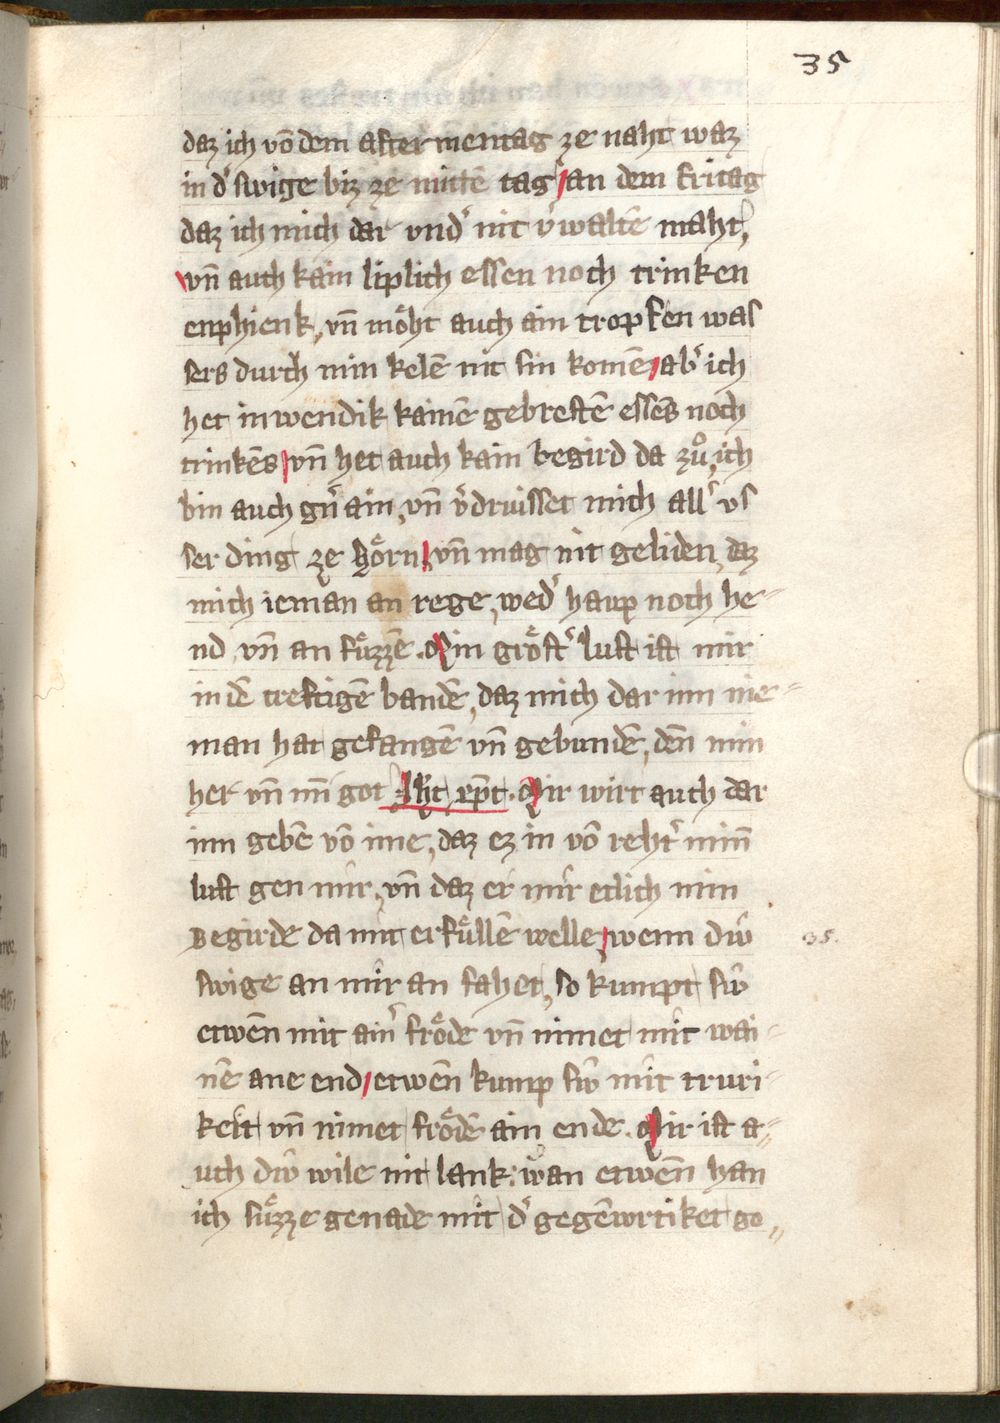 35
daz ich võ dem after mentag ze naht waz
in d͛ swige biz ze mittē tag an dem fritag
daz ich mich dar vnd͛ nit v͛waltē maht,
vn̄ auch kain liplich essen noch trinken
enphienk, vn̄ mo͗ht auch ain tropfen was
sers durch min kelē nit sin komē ab͛ ich
het inwendik kainē gebrestē essēs noch
trinkēs vn̄ het auch kain begird da zuͦ, ich
bin auch gn͛ ain, vn̄ v͛druisset mich all͛ vs
ser ding ze hoͤrn vn̄ mag nit geliden, daz
mich ieman an rege, wed͛ haup noch he-
nd, vn̄ an fuͤzzē. Min groͤst͛ lust ist mir
in dē creftigē bandē, daz mich dar inn nie-
man hat gefangē vn̄ gebundē, dēn min
her vn̄ mī got Jh̄c xp̄c. Mir wirt auch dar
inn gebē võ ime, daz ez in võ reht͛ minn̄
lust gen mir, vn̄ daz er mir etlich min
Begirde da mit erfuͤllē welle, wenn diu̍
35.
swige an mir an fahet, so kumpt siu̍
etwēn mit ain͛ froͤde vn̄ nimet mit wai-
nē ane end etwēn kump siu̍ mit truri-
keit vn̄ nimet froͤdē ain ende. Mir ist a-
uch diu̍ wile nit lank: wan etwēn han
ich suͤzze genade mit d͛ gegēwrtiket go-